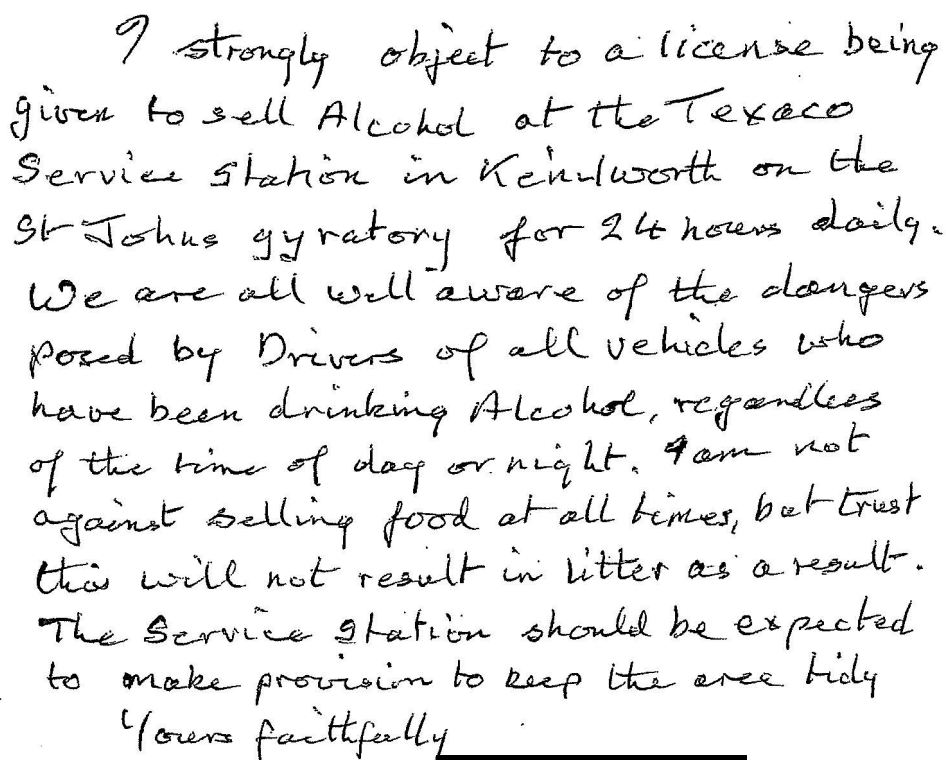 I strongly object to a license being
given to sell Alcohol at the Texaco
Service Station in Kenilworth on the
St Johns gyratory for 24 hours daily.
We are all well aware of the dangers
posed by Drivers of all vehicles who
have been drinking Alcohol, regardless
of the time of day or night. I am not
against selling food at all times, but trust
this will not result in litter as a result.
The Service Station should be expected
to make provision to keep the area tidy
Yours faithfully